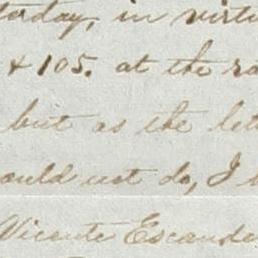 terday, in virtu
& 105. at the ra
but as the let
ould not do, I
Vicente Escande